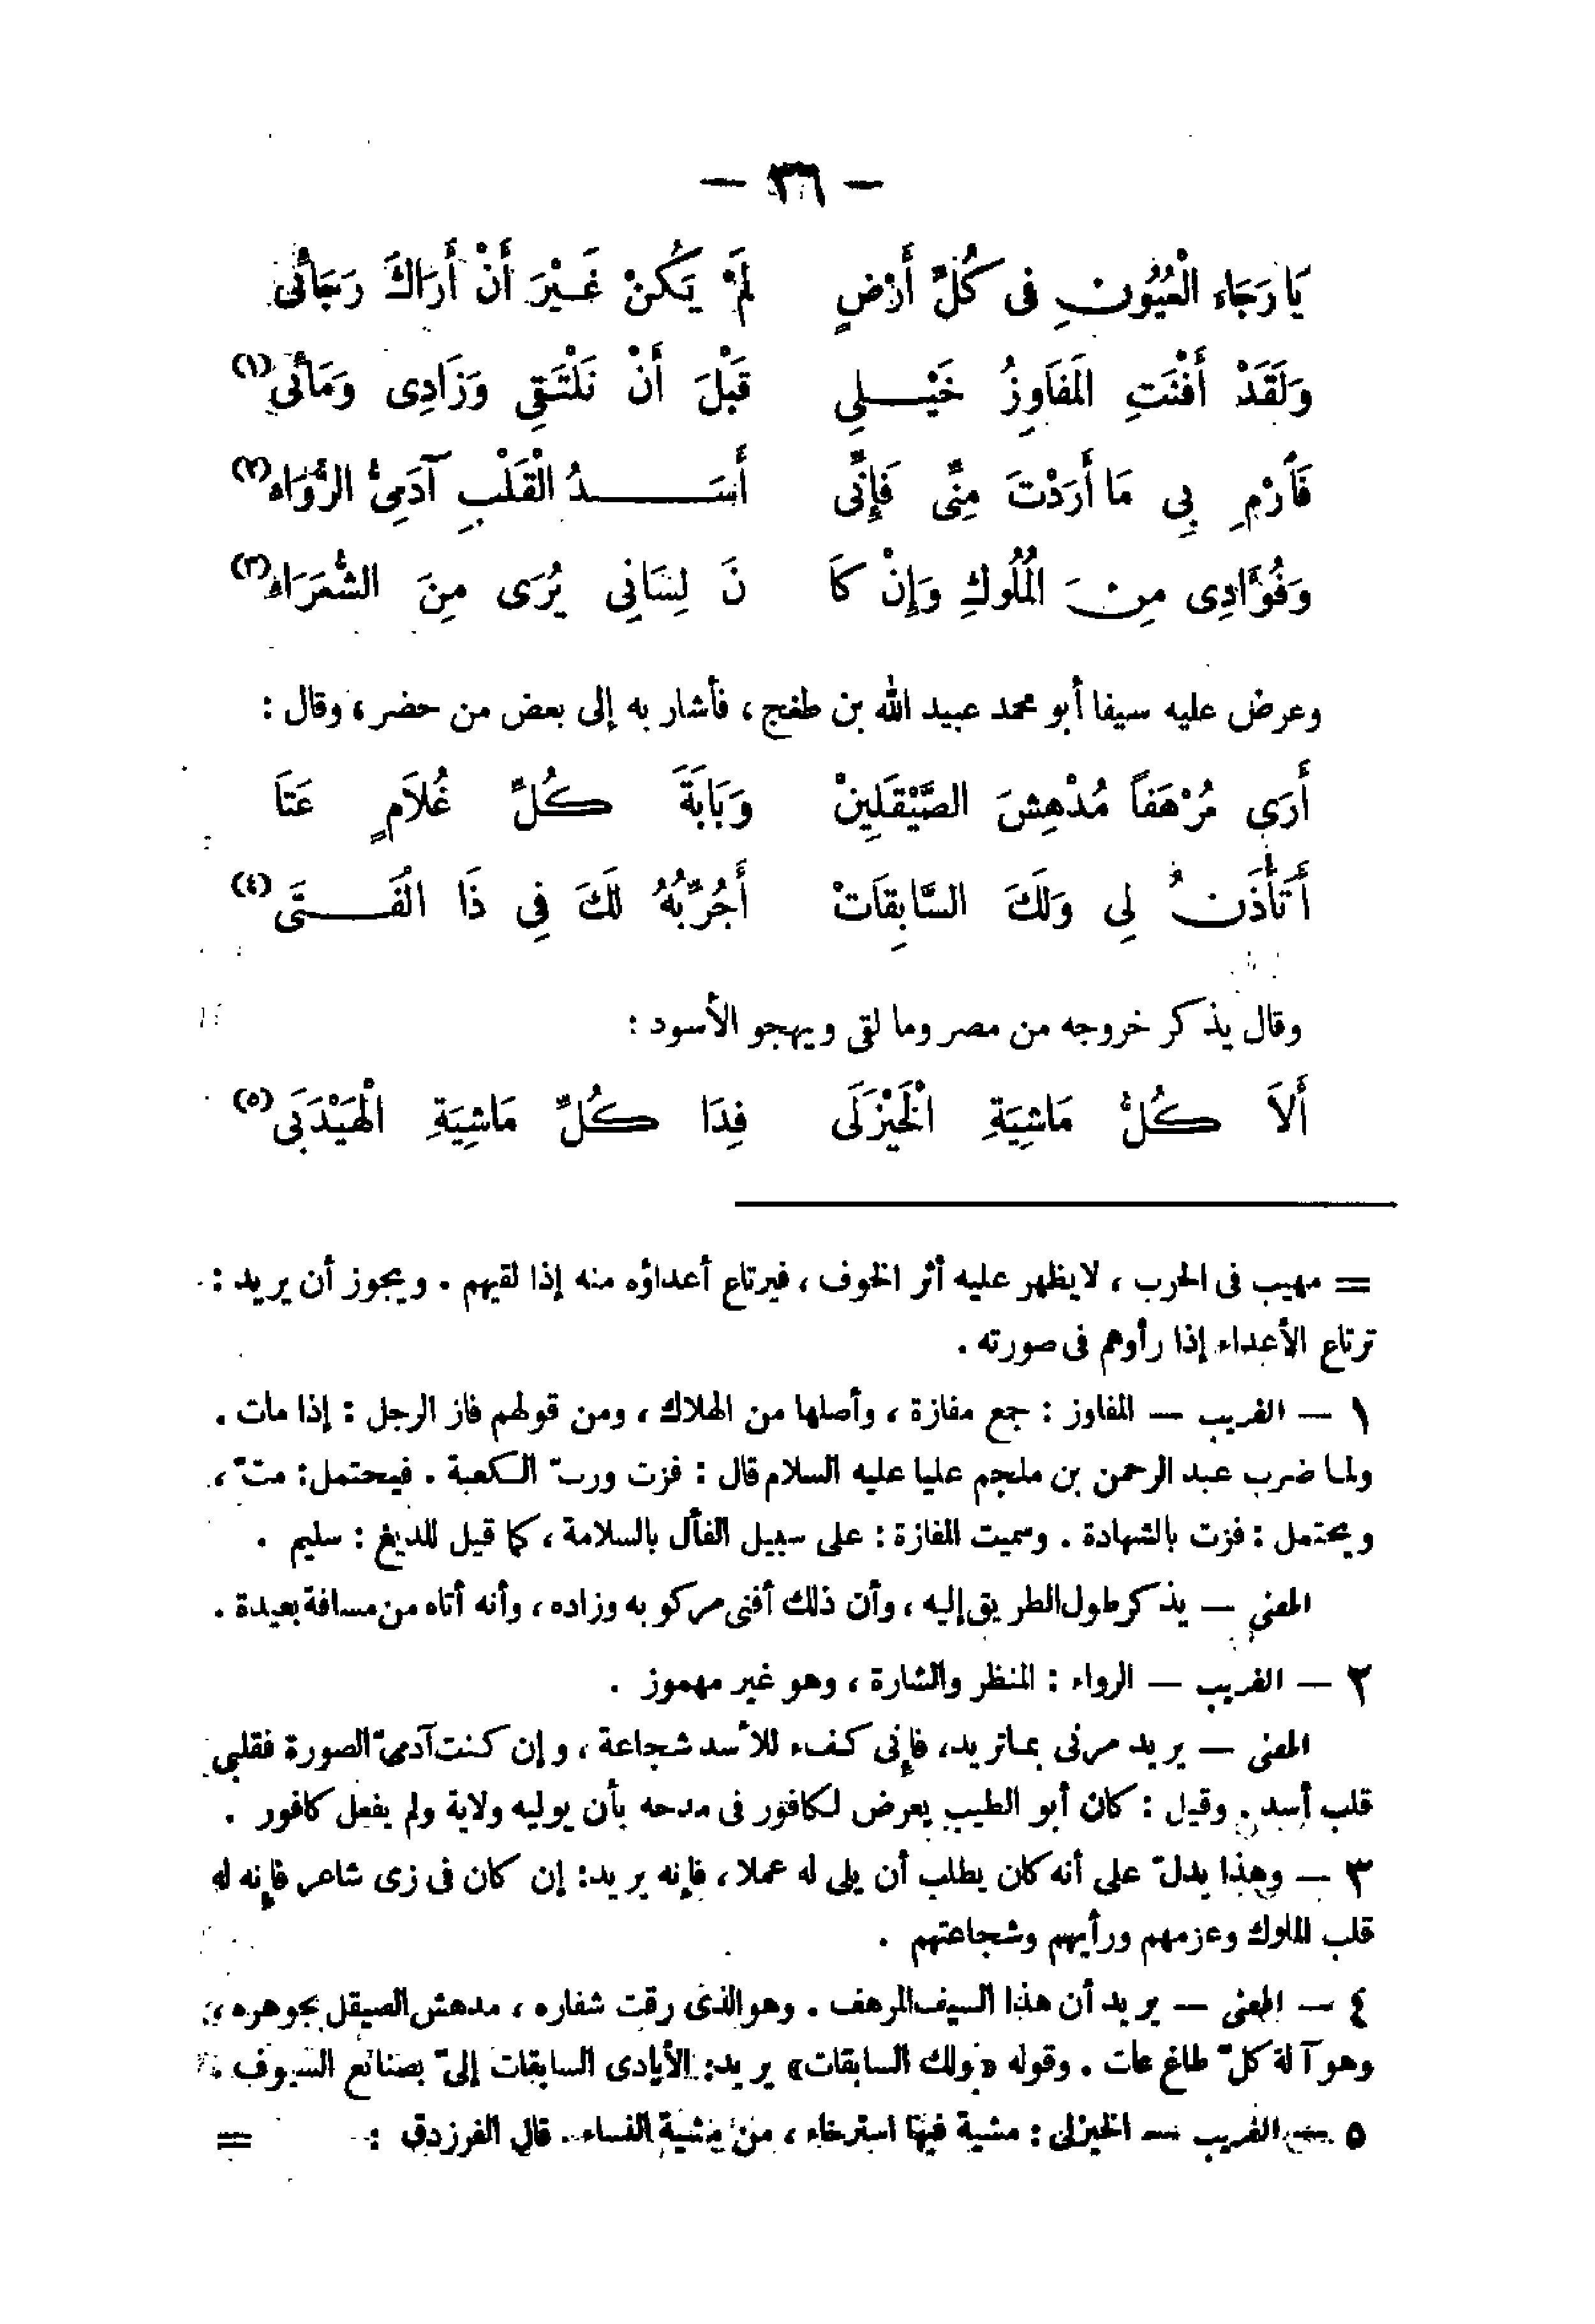 — ٣٦ —
يَا رَجَاءَ الْعُيُونِ فى كُلِّ أَرْضٍ لَمْ يَكُنْ غَيْرَ أَنْ أَرَاكَ رَجَائى
وَلَقَدْ أَفْنَتِ الْمَفَاوِزُ خَيْلِى قَبْلَ أَنْ نَلْتَقِى وَزَادِى وَمَائى (١)
فَأَرْمِ بِى مَا أَرَدْتَ مِنِّى فَإِنِّى أَسَدُ الْقَلْبِ آدَمِىُّ الرُّوَاءِ (٢)
وَفُؤَادِى مِنَ الْمُلُوكِ وَإِنْ كَا نَ لِسَانِى يُرَى مِنَ الشُّعَرَاءِ (٣)
وعرض عليه سيفا أبو محمد عبيد الله بن طغج، فأشار به إلى بعض من حضر، وقال :
أَرَى مُرْهَفاً مُدْهِشَ الصَّيْقَلِينْ وَبَابَةَ كُلِّ غُلاَمٍ عَتَا
أَتَأْذَنُ لِى وَلَكَ السَّابِقَاتْ أُجَرِّبُهُ لَكَ فِى ذَا الْفَتَى (٤)
وقال يذكر خروجه من مصر وما لقى ويهجو الأسود :
أَلاَ كُلُّ مَاشِيَةِ الْخَيْزَلَى فِدَا كُلِّ مَاشِيَةِ الْهَيْدَبَى (٥)
= مهيب فى الحرب ، لا يظهر عليه أثر الخوف ، فيرتاع أعداؤه منه إذا لقيهم . ويجوز أن يريد :
ترتاع الأعداء إذا رأوهم فى صورته .
١ — الغريب — المفاوز : جمع مفازة ، وأصلها من الهلاك ، ومن قولهم فاز الرجل : إذا مات .
ولما ضرب عبد الرحمن بن ملجم عليا عليه السلام قال : فزت وربّ الكعبة . فيحتمل : متّ ،
ويحتمل : فزت بالشهادة . وسميت المفازة : على سبيل الفأل بالسلامة ، كما قيل للديغ : سليم .
المعنى — يذكر طول الطريق إليه ، وأن ذلك أفنى مركوبه وزاده ، وأنه أتاه من مسافة بعيدة .
٢ — الغريب — الرواء : المنظر والشارة ، وهو غير مهموز .
المعنى — يريد مرنى بما تريد، فإنى كفء للأسد شجاعة ، وإن كنت آدمىّ الصورة فقلبى
قلب أسد . وقيل : كان أبو الطيب يعرض لكافور فى مدحه بأن يوليه ولاية ولم يفعل كافور .
٣ — وهذا يدلّ على أنه كان يطلب أن يلى له عملا ، فإنه يريد: إن كان فى زى شاعر فإنه له
قلب الملوك وعزمهم ورأيهم وشجاعتهم .
٤ — المعنى — يريد أن هذا السيف المرهف . وهو الذى رقت شفاره ، مدهش الصيقل بجوهره ،
وهو آلة كلّ طاغ عات . وقوله «ولك السابقات» يريد: الأيادى السابقات إلىّ بصنائع السيوف .
٥ — الغريب — الخيزلى : مشية فيها استرخاء ، من مشية النساء . قال الفرزدق : =